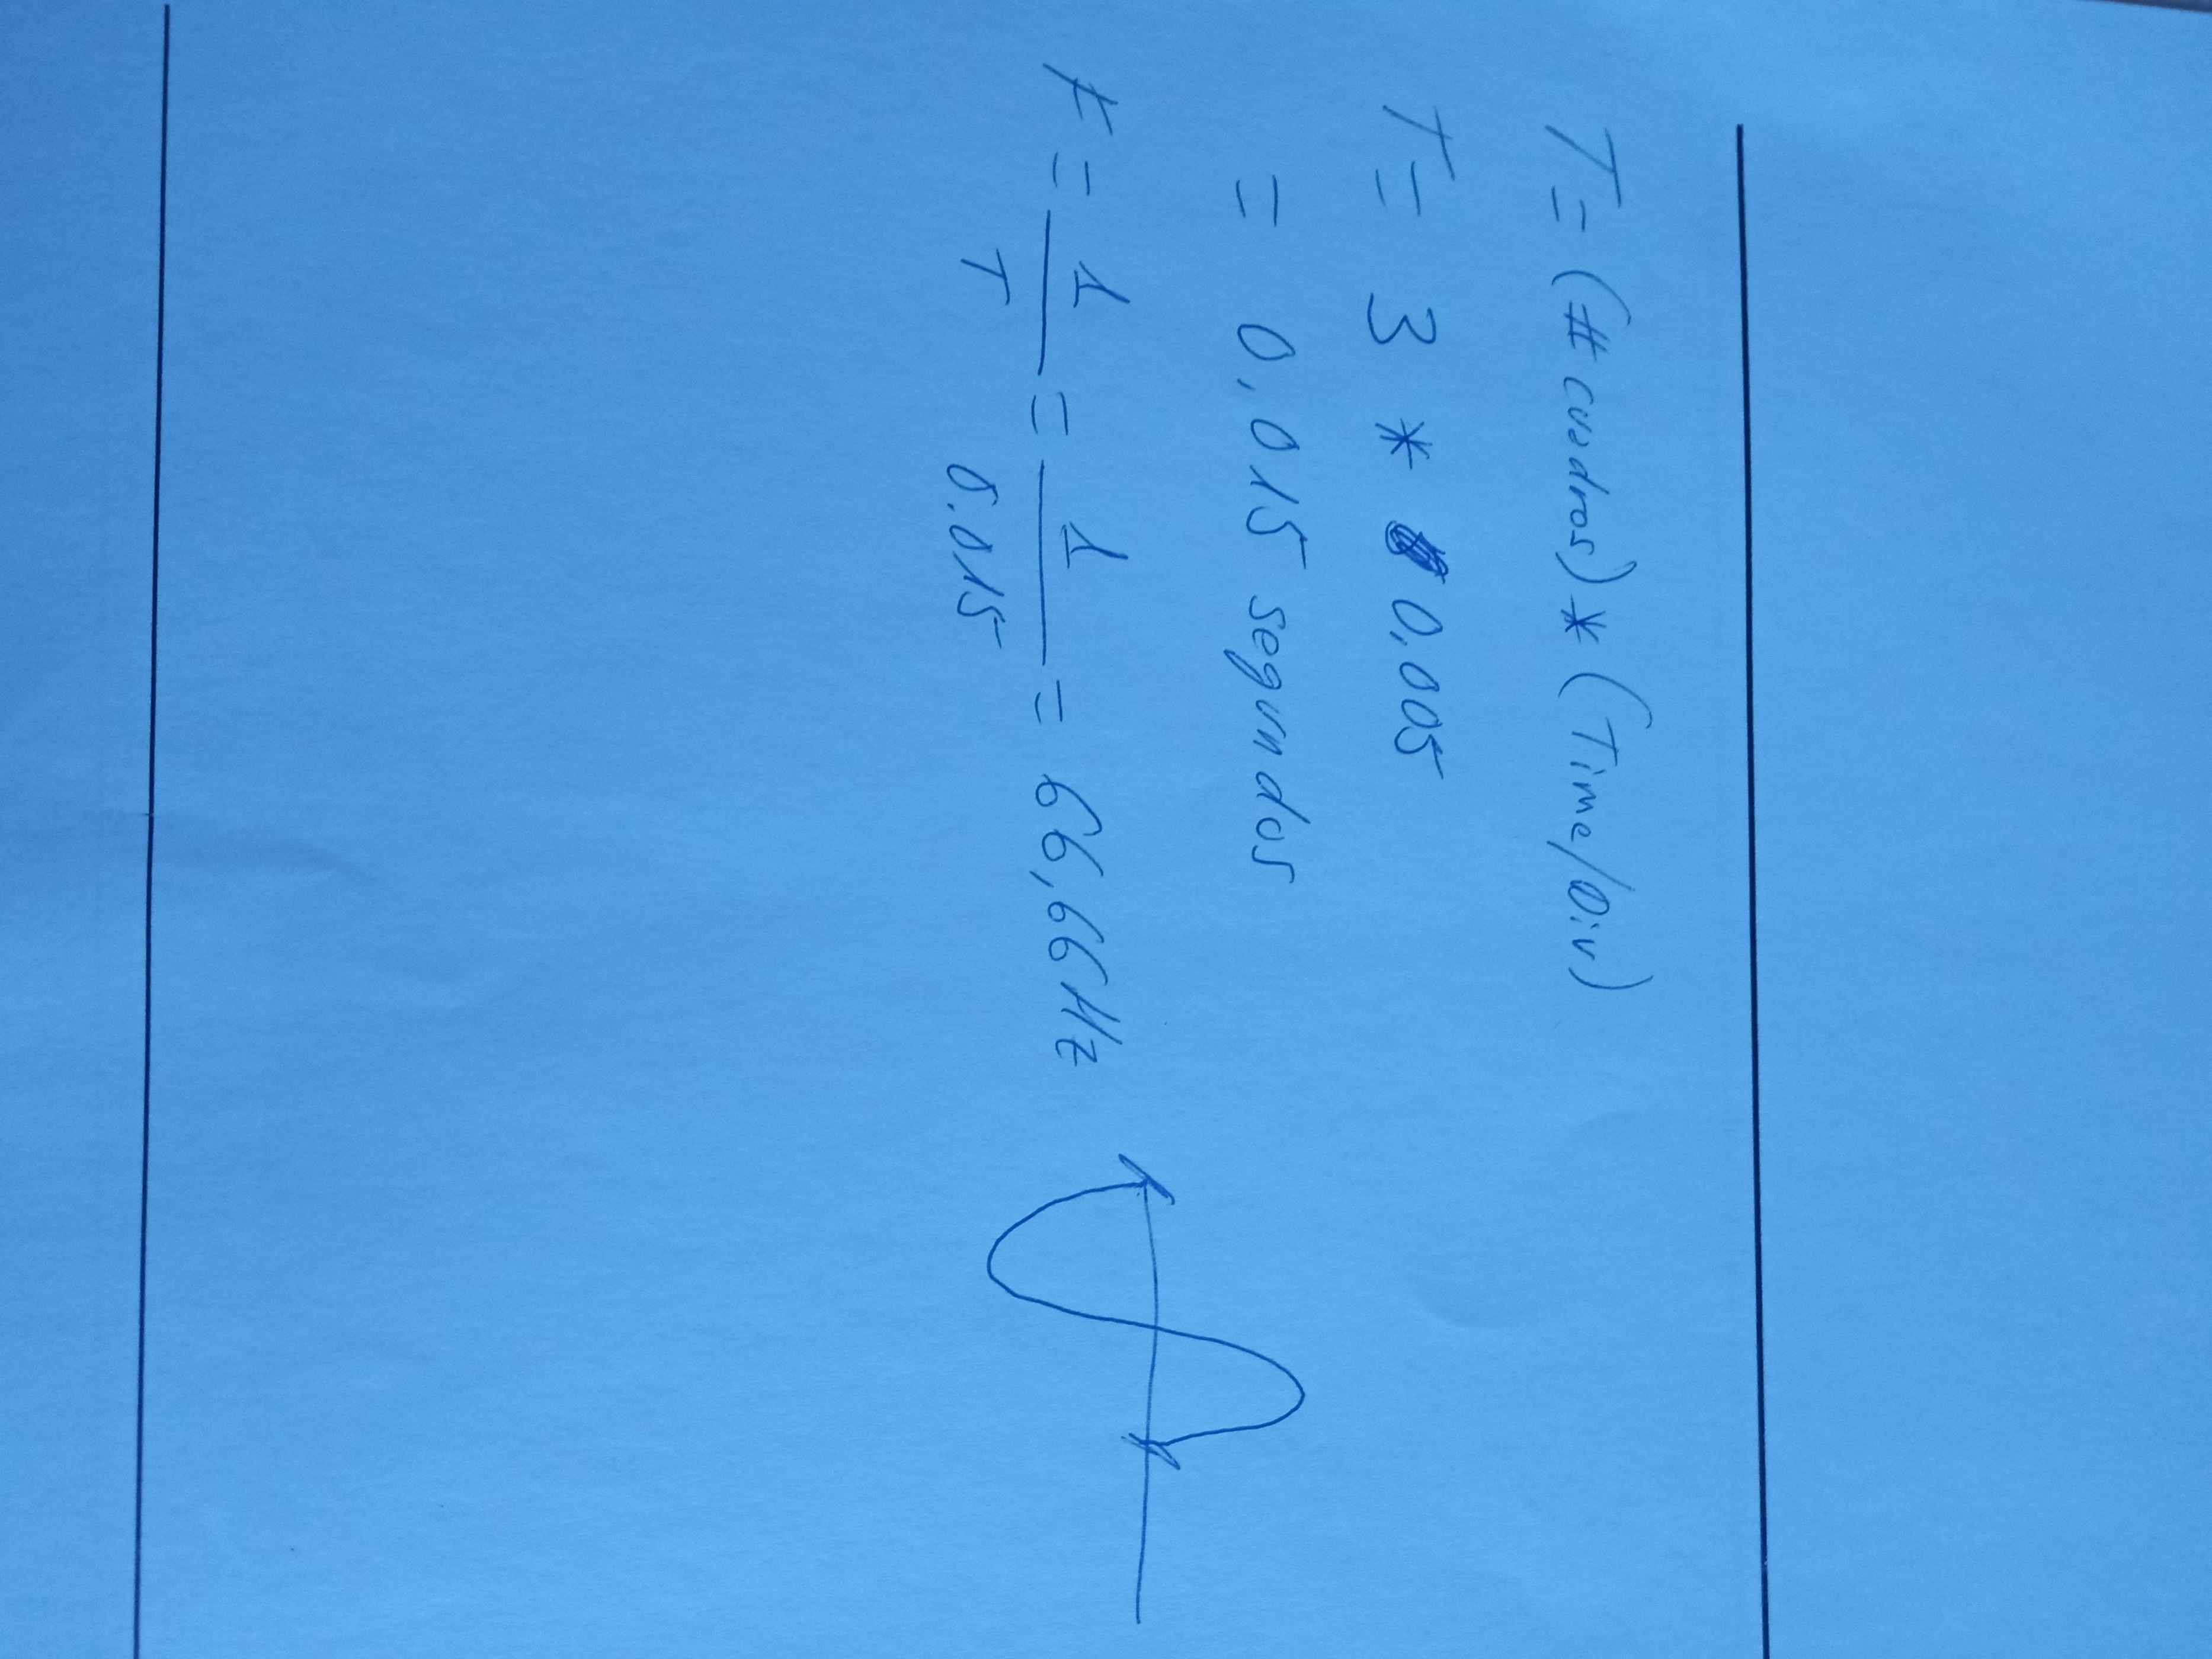 T= (#cuadros)*(Time/Div)
T= 3 * 0,005
= 0,015 segundos
F = 1/T = 1/0.015 = 66,66Hz